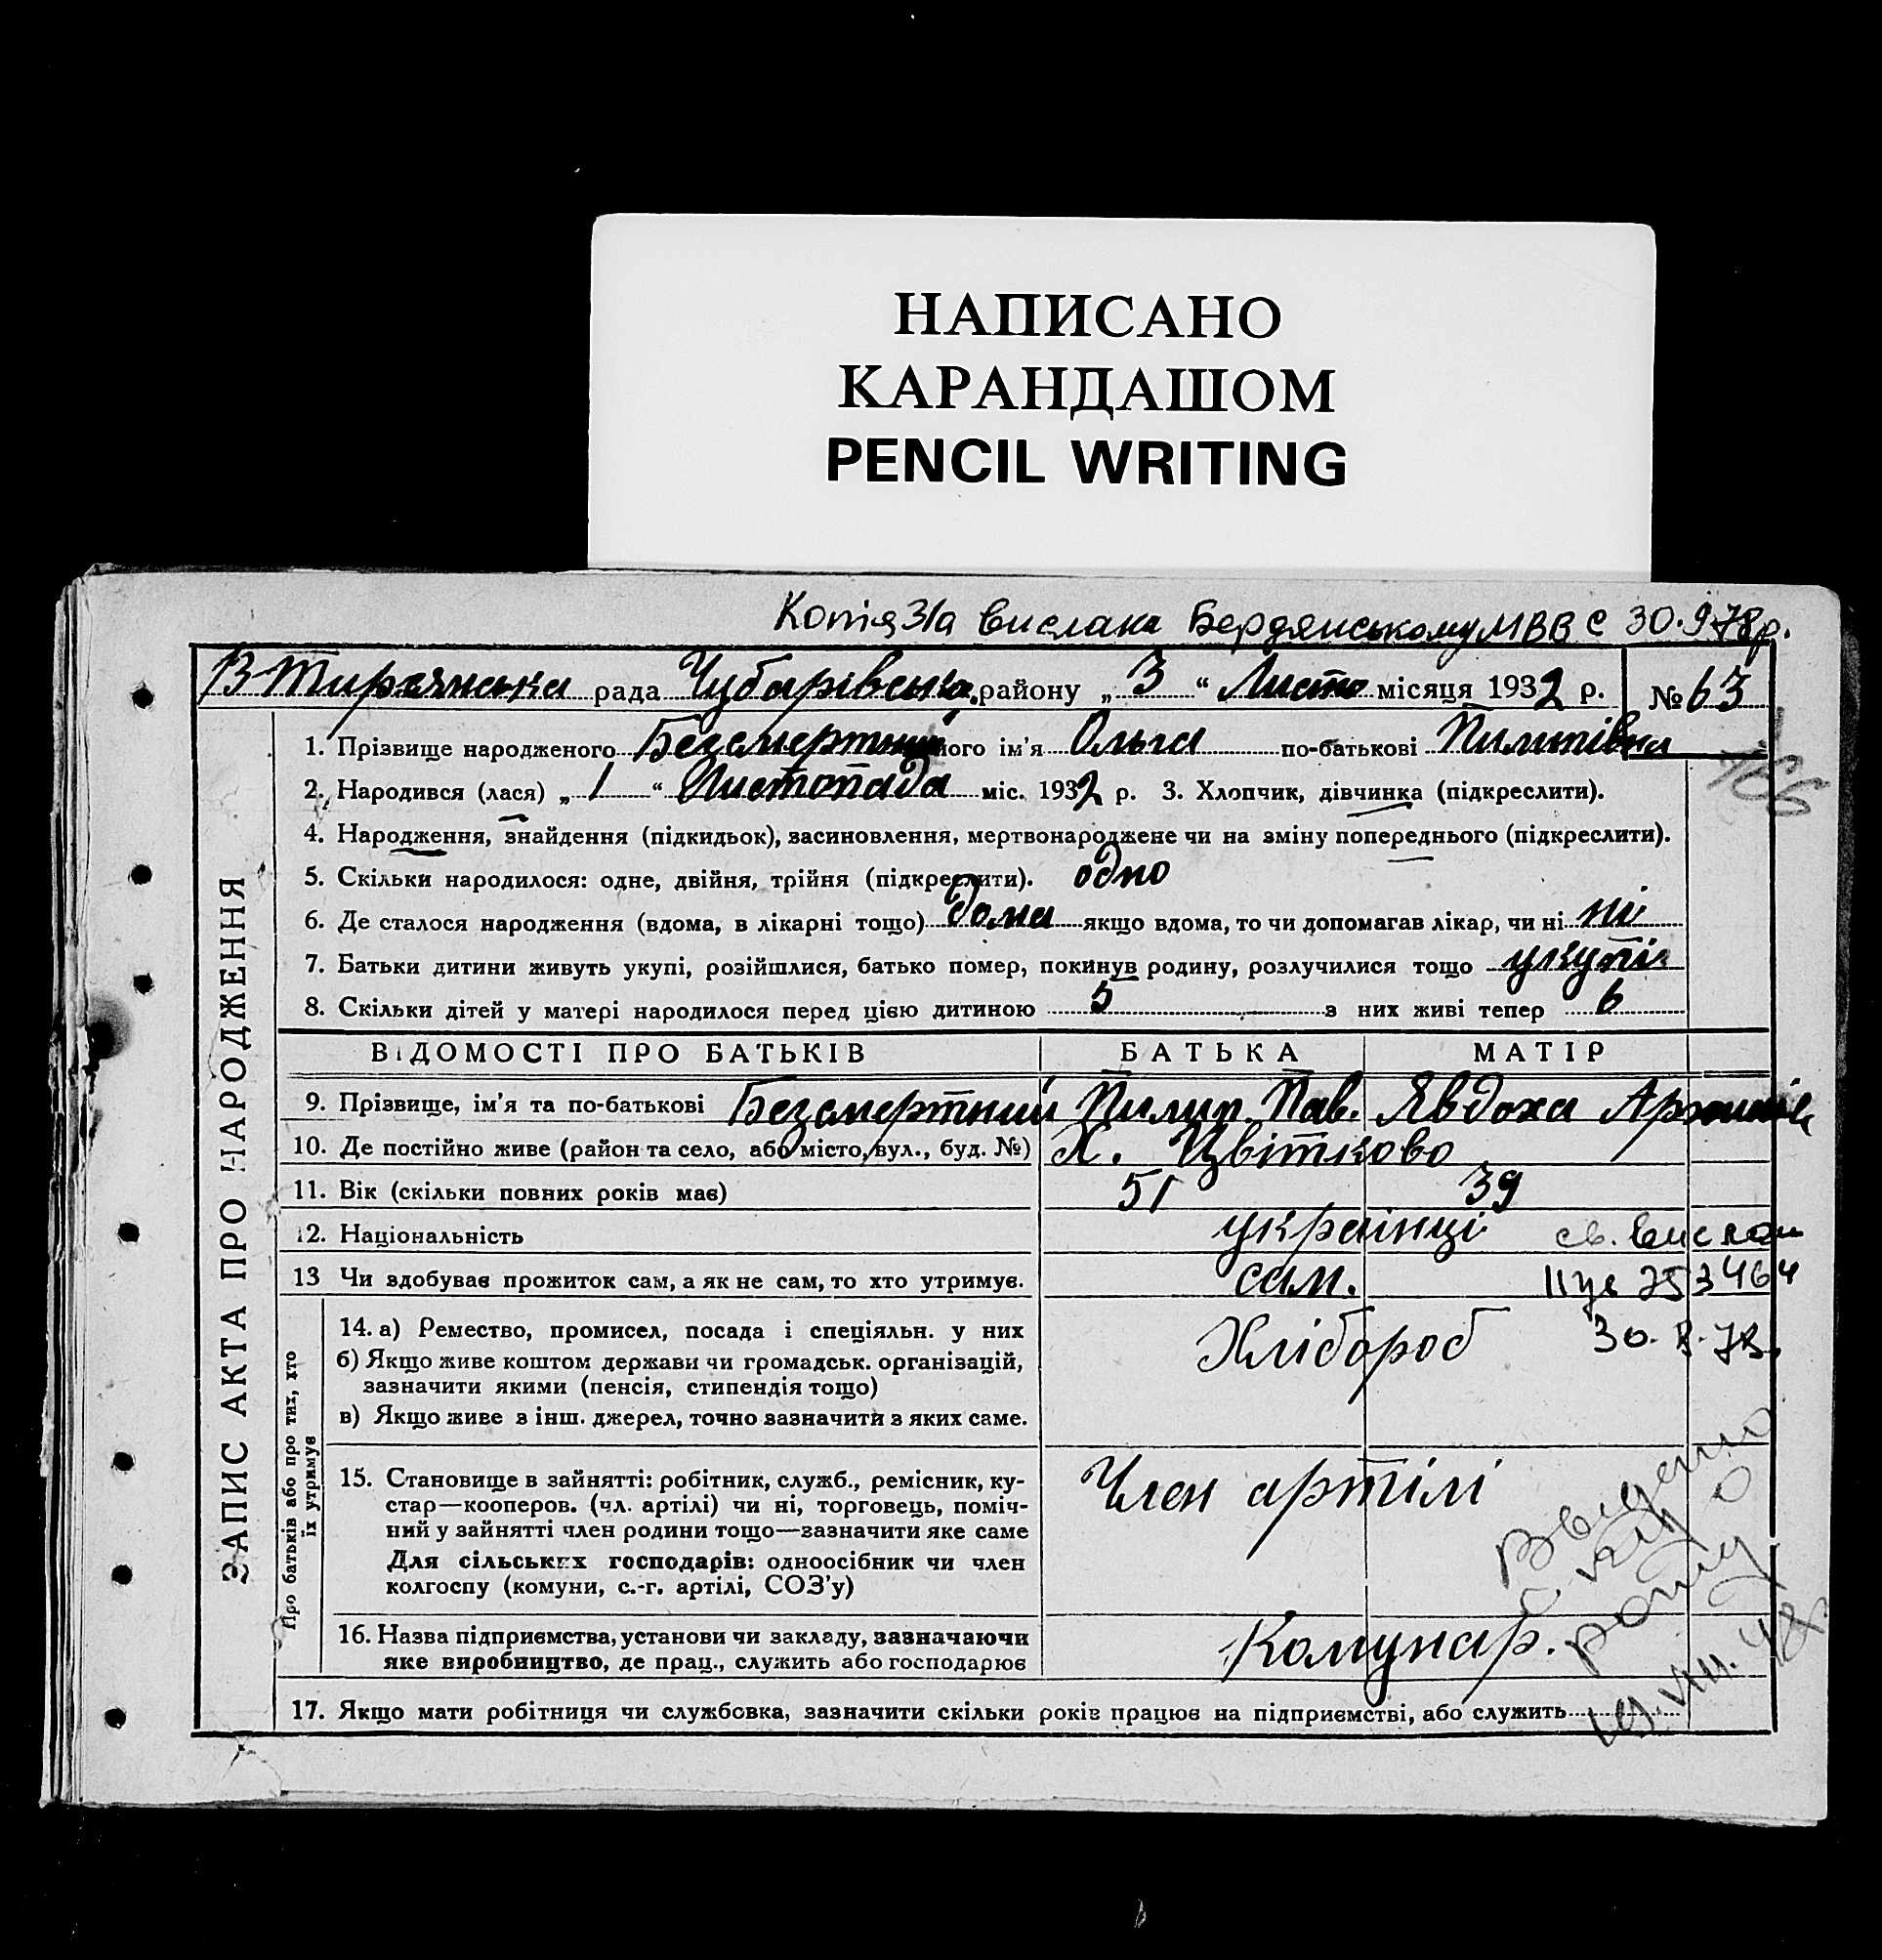 НАПИСАНО
КАРАНДАШОМ
PENCIL WRITING
Копія З/а вислана Бердянському МВВС 30.9.78р.
В-Тирсянська рада Чубарівська району „ 3 “ Листо місяця 1932 р. № 63
1. Прізвище народженого Безсмертний його ім’я Ольга по-батькові Пилипівна
166
2. Народився (лася) „ 1 “ Листопада міс. 1932 р. 3. Хлопчик, дівчинка (підкреслити).
4. Народження, знайдення (підкидьок), засиновлення, мертвонароджене чи на зміну попереднього (підкреслити).
5. Скільки народилося: одне, двійня, трійня (підкреслити). одно
6. Де сталося народження (вдома, в лікарні тощо) дома якщо вдома, то чи допомагав лікар, чи ні ні
7. Батьки дитини живуть укупі, розійшлися, батько помер, покинув родину, розлучилися тощо укупі
8. Скільки дітей у матері народилося перед цією дитиною 5 з них живі тепер 6
ЗАПИС АКТА ПРО НАРОДЖЕННЯ
ВІДОМОСТІ ПРО БАТЬКІВ БАТЬКА МАТІР
9. Прізвище, ім’я та по-батькові Безсмертний Пилип Пав. Явдоха
10. Де постійно живе (район та село, або місто, вул., буд. №) Х. Цвітково
11. Вік (скільки повних років має) 51 39
12. Національність українці св. вислан
13 Чи здобуває прожиток сам, а як не сам, то хто утримує. сам. 253464
Про батьків або про тих, хто їх утримує
14. а) Ремество, промисел, посада і спеціяльн. у них Хлібороб 30.8.78.
б) Якщо живе коштом держави чи громадськ. організацій,
зазначити якими (пенсія, стипендія тощо)
в) Якщо живе з інш. джерел, точно зазначити з яких саме.
15. Становище в зайнятті: робітник, служб., ремісник, ку-
стар—кооперов. (чл. артілі) чи ні, торговець, поміч-
ний у зайнятті член родини тощо—зазначити яке саме
Для сільських господарів: одноосібник чи член
колгоспу (комуни, с.-г. артілі, СОЗ’у)
Член артілі
16. Назва підприємства, установи чи закладу, зазначаючи
яке виробництво, де прац., служить або господарює
Комунар.
17. Якщо мати робітниця чи службовка, зазначити скільки років працює на підприємстві, або служить